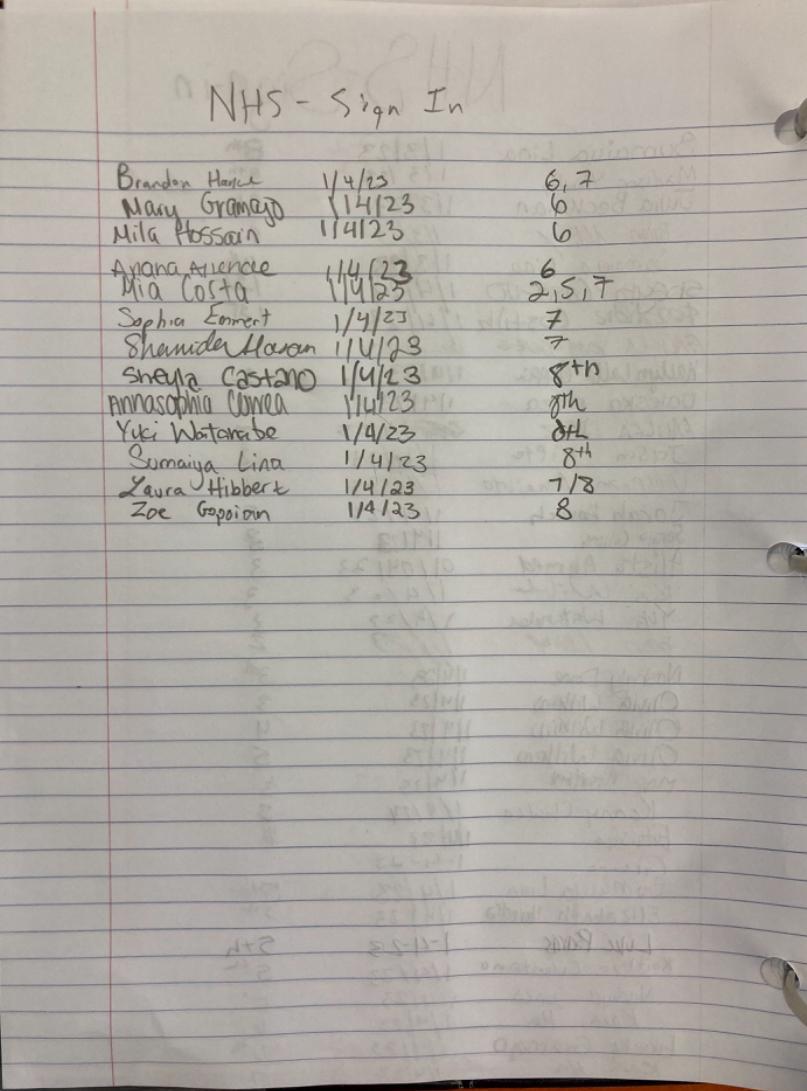 NHS - Sign In
Brandon 1/4/23 6, 7
Mary Gramajo 1/4/23 6
Mila Hossain 1/4/23 6
1/4/23 6
Mia Costa 1/4/23 2, 5, 7
Sophia Emmert 1/4/23 7
1/4/23 7
Sheyla Castano 1/4/23 8th
Annasophia Correa 1/4/23 8th
Yuki Watanabe 1/4/23 8th
Sumaiya Lina 1/4/23 8th
Laura Hibbert 1/4/23 7/8
Zoe Gopoian 1/4/23 8